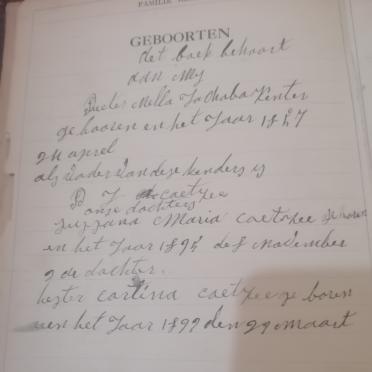 FAMILIE
GEBOORTEN
det boek behoort
aan my
Mella Jachoba
gebooren en het Jaar 18
24 aprel
als vader van deze kenders is
P J Coetzee
onze dochters
Suzzana Maria Coetzee geboren
en het Jaar 189 de 8 November
2 de dochter.
hester carlina Coetzee ge boren
en het Jaar 1899 den 29 maart